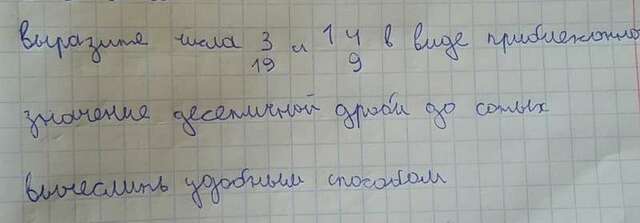 выразите числа 3 и 1 4 в виде приближонно
19 9
значение десетичной дроби до сотых
вычеслить удобным способом